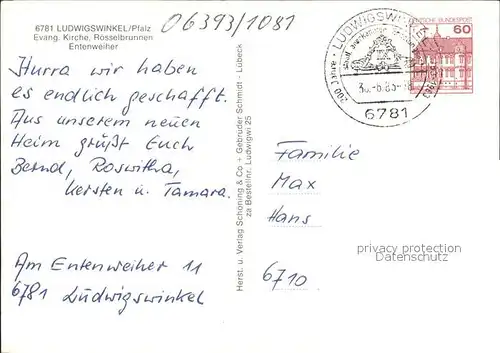 6781 LUDWIGSWINKEL/Pfalz
Evang. Kirche, Rösselbrunnen
Entenweiher
06393/1081
Hurra wir haben
es endlich geschafft.
Aus unserem neuen
Heim grüßt Euch
Bernd, Roswitha,
Kersten u. Tamara.
Am Entenweiher 11
6781 Ludwigswinkel
Herst. u. Verlag Schöning & Co + Gebrüder Schmidt · Lübeck
za Bestellnr. Ludwigwi 25
LUDWIGSWINKEL
200 Jahre
6781
DEUTSCHE BUNDESPOST
60
Familie
Max
Hans
6710
privacy protection
Datenschutz